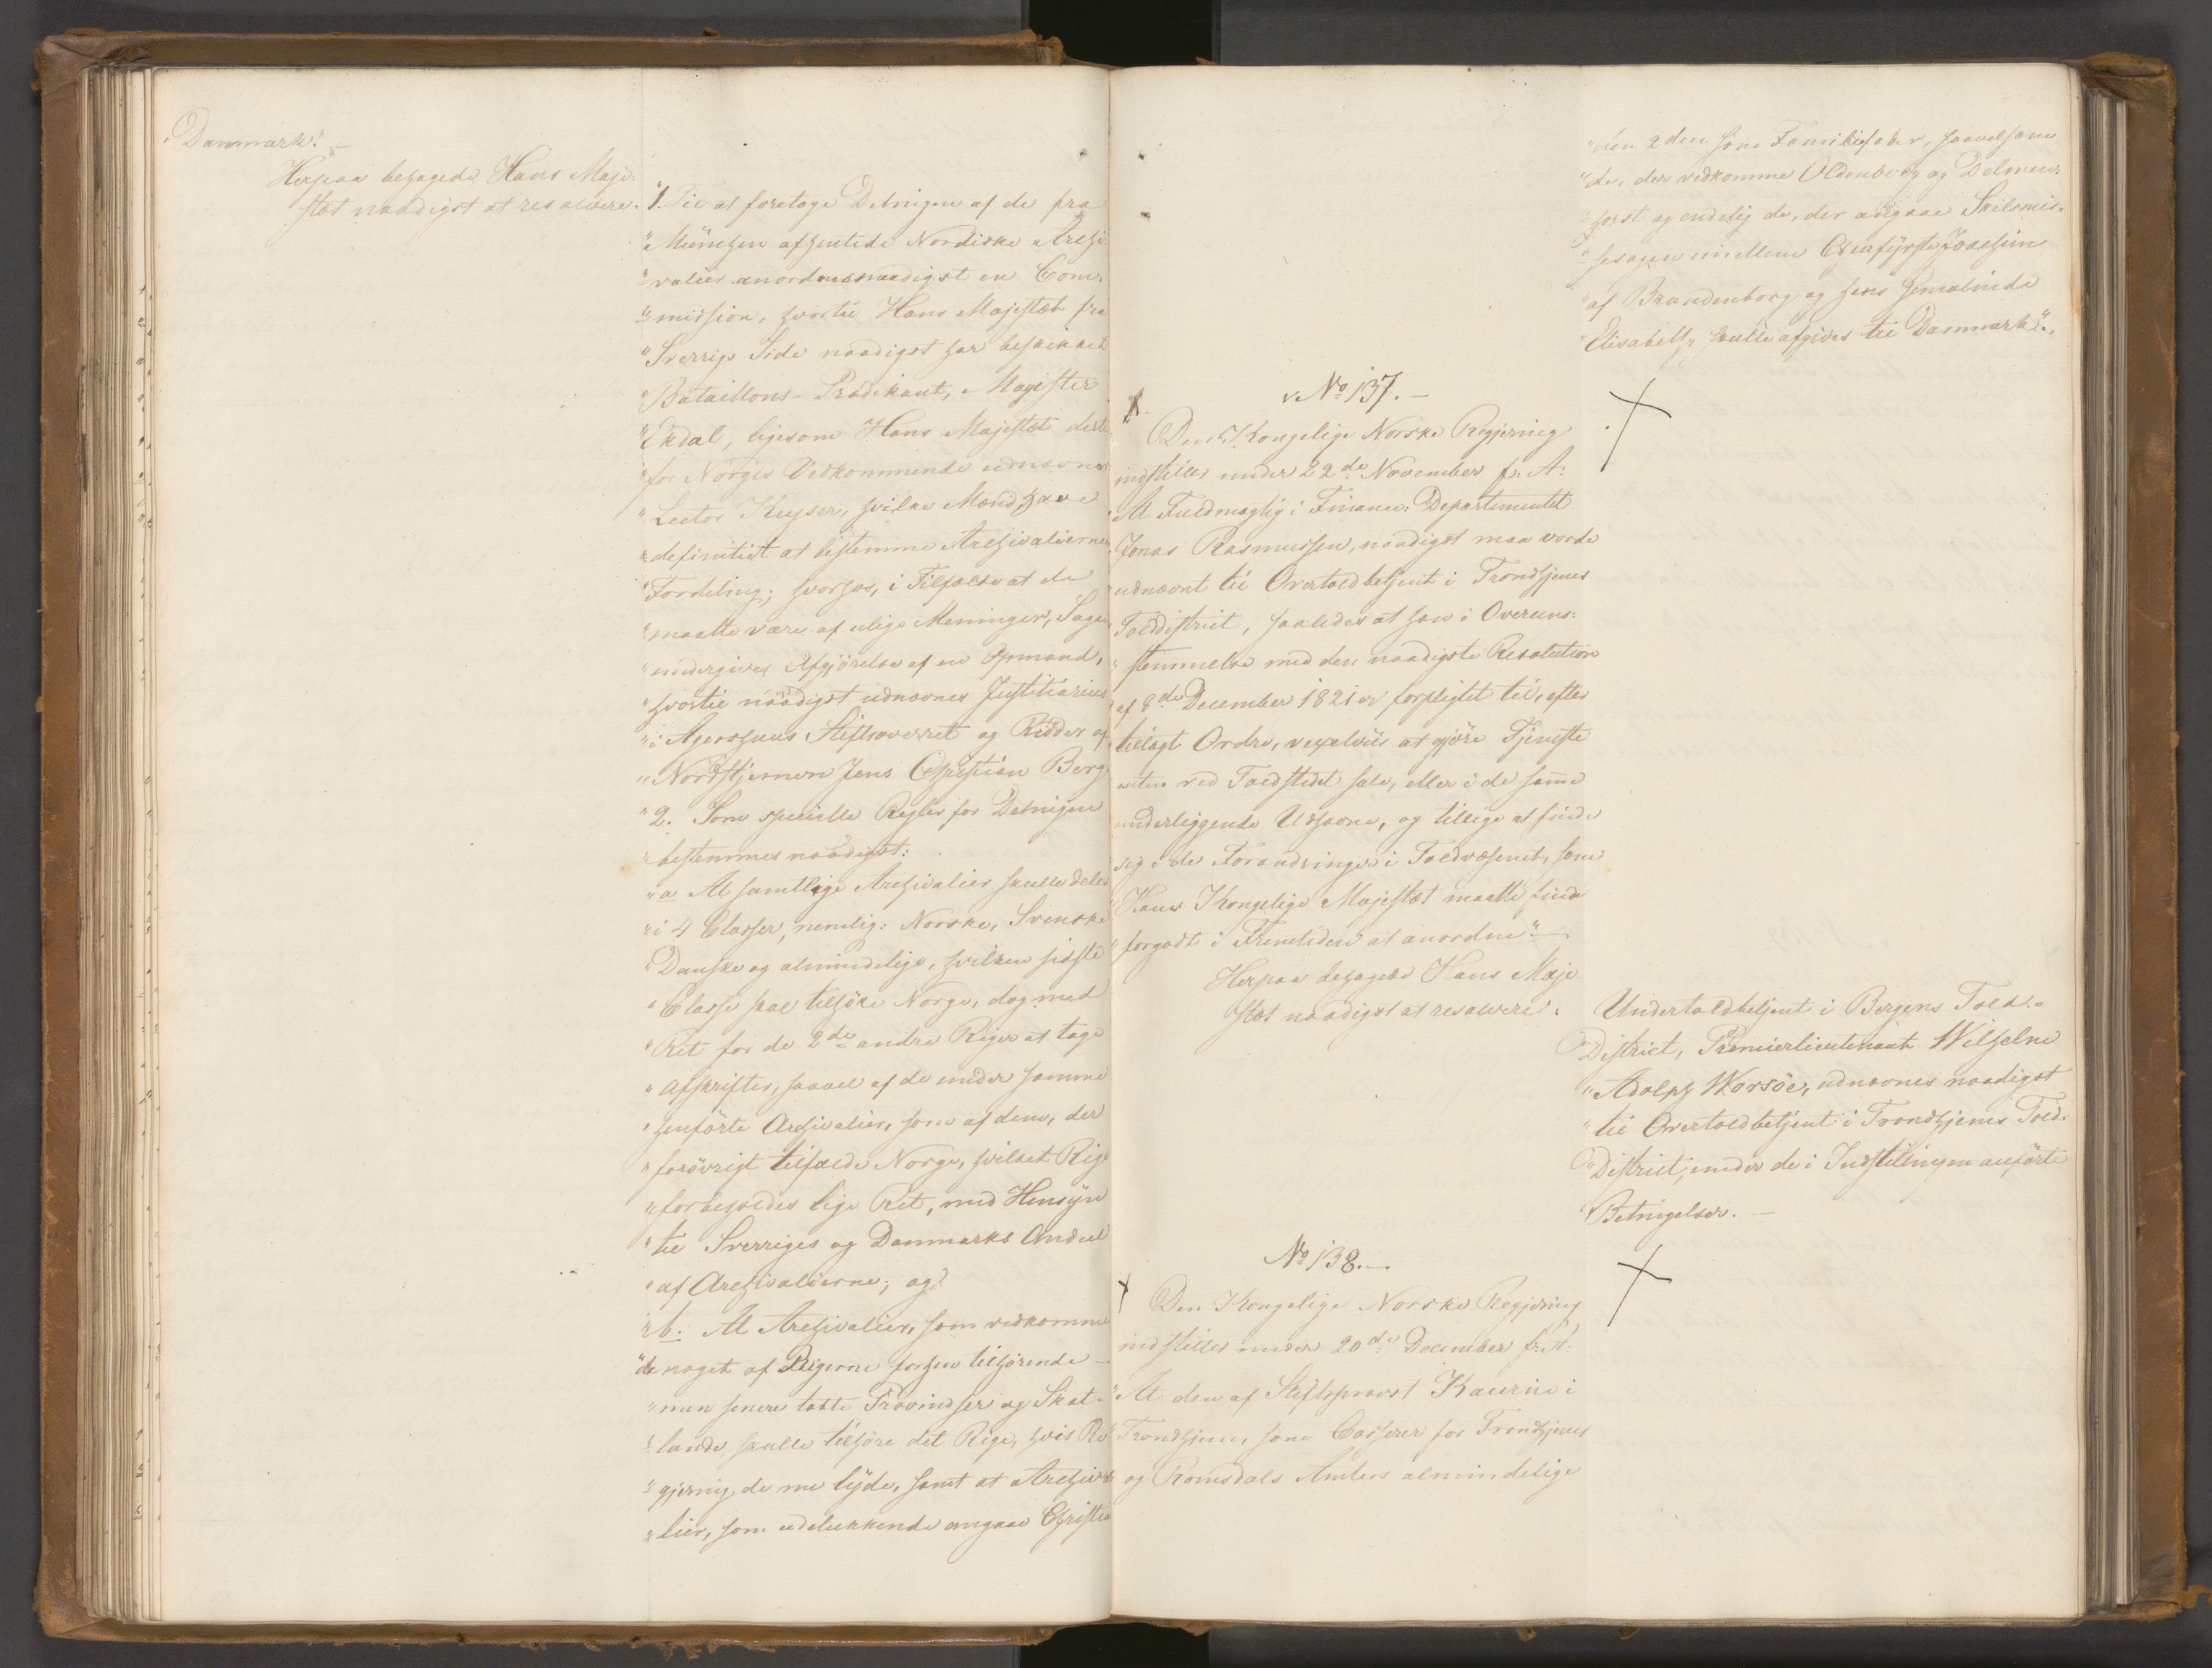 "Danmark."
Herpaa behagede Hans Maje-
stæt naadigst at resolvere:
"1. Til at foretage Delningen af de fra
"München afhentede Nordiske Archi-
"valier anordnes naadigst en Com-
"mission, hvortil Hans Majestæt fra
"Sverrigs Side naadigst har beskikket
"Bataillons-Prædikant, Magister
"Ekdal, ligesom Hans Majestæt dertil
"for Norges Vedkommende udnævner
"Lector Keyser, hvilke Mænd have
"definitivt at bestemme Archivaliernes
"Fordeling; hvorhos, i Tilfælde at de
"maatte være af ulige Meninger, Sagen
"undergives Afgjörelse af en Opmand,
"hvortil naadigst udnævnes Justitiarius
"i Agershuus Stiftsoverret og Ridder af
"Nordstjernen Jens Christian Berg.
"2. Som specielle Regler for Delningen
"bestemmes naadigst:
"a. At samtlige Archivalier skulle deles
"i 4 Classer, nemlig: Norske, Svenske
"Danske og almindelige, hvilken sidste
"Classe skal tilhöre Norge, dog med
"Ret for de 2de andre Riger at tage
"Afskrifter, saavel af de under samme
"henförte Archivalier, som af dem, der
"forövrigt tilfalde Norge, hvilket Rige
"forbeholdes lige Ret, med Hensyn
"til Sverriges og Danmarks Andeel
"af Archivalierne; og
"b. At Archivalier, som vedkomme
"de noget af Rigerne forhen tilhörende
"men senere tabte Provindser og Skat-
"lande skulle tilhöre det Rige, hvis Re-
"gjering de nu lyde, samt at Archiva-
"lier, som udelukkende angaae Christian
"den 2den som Familiefader, saavelsom
"de, der vedkomme Oldenborg og Delmen-
"horst og endelig de, der angaae Skilsmis-
"sesagen imellem Churfyrste Joachim
"af Brandenborg og hans Gemalinde
"Elisabeth, skulle afgives til Danmark".
No 137.
Den Kongelige Norske Regjering
indstiller under 22de November f: A:
"At Fuldmægtig i Finance-Departementet
"Jonas Rasmussen, naadigst maa vorde
"udnævnt til Overtoldbetjent i Trondhjems
"Tolddistrict, saaledes at han i Overens-
"stemmelse med den naadigste Resolution
"af 8de December 1821 er forpligtet til, efter
"tillagt Ordre, vexelviis at gjöre Tjeneste
"enten ved Toldstedet selv, eller i de samme
"underliggende Udhavne, og tillige at finde
"sig i de Forandringer i Toldvæsenet, som
"Hans Kongelige Majestæt maatte finde
"forgodt i Fremtiden at anordne."
Herpaa behagede Hans Maje-
stæt naadigst at resolvere:
Undertoldbetjent i Bergens Told-
"District, Premierlieutenant Wilhelm
"Adolph Worsöe, udnævnes naadigst
"til Overtoldbetjent i Trondhjems Told-
"District, under de i Indstillingen anförte
"Betingelser.
No 138.
Den Kongelige Norske Regjering
indstiller under 20de December f: A:
"At den af Stiftsprovst Kaurin i
Trondhjem, som Casserer for Trondhjems
og Romsdals Amters almindelige